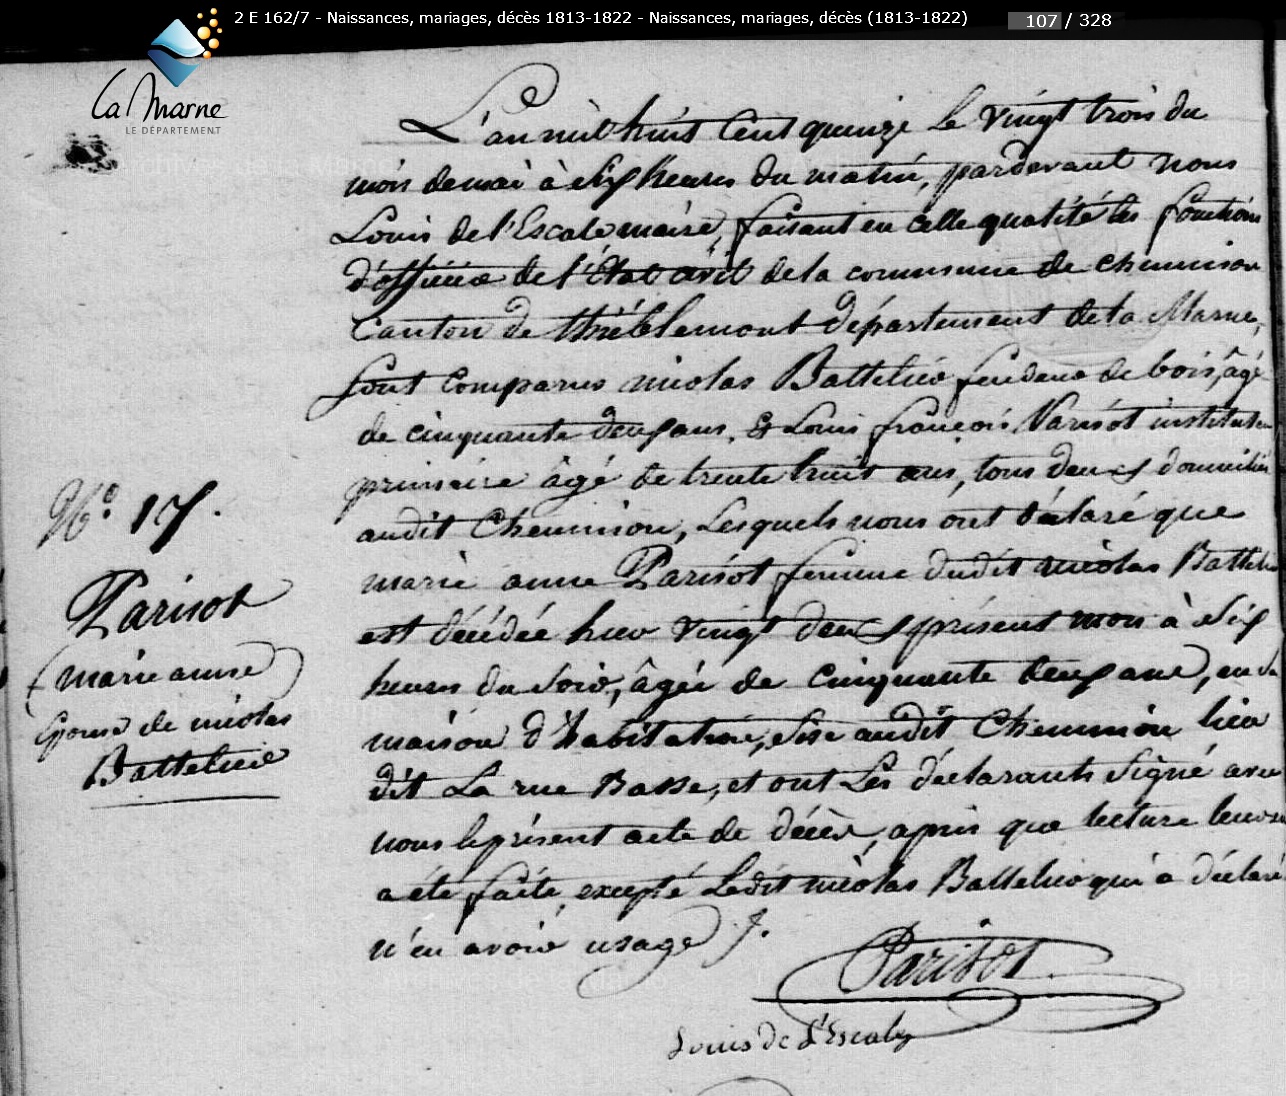 2 E 162/7 - Naissances, mariages, décès 1813-1822 - Naissances, mariages, décès (1813-1822)
107 / 328
La Marne
LE DÉPARTEMENT
L'an mil huit Cent quinze le vingt trois du
mois de mai à dix heures du matin, pardevant nous
Louis de l'Escale maire, faisant en cette qualité les fonctions
d'officier de l'État civil de la commune de cheminon
Canton de thiéblemont département de la Marne,
Sont comparus nicolas Battelier fendeur de bois, âgé
de cinquante deux ans, & Louis françois Parisot instituteur
primaire âgé de trente huit ans, tous deux domiciliés
audit Cheminon, Lesquels nous ont déclaré que
marie anne Parisot femme dudit nicolas Battelier
est décédée hier vingt deux présent mois à Six
heures du Soir, âgée de cinquante deux ans, en sa
maison d'habitation, Sise audit Cheminon lieu
dit La rue Basse, et ont Les déclarants Signé avec
nous le présent acte de décès, après que lecture leur en
a été faite, excepté Ledit nicolas Battelier qui a déclaré
n'en avoir usage /.
N.° 17.
Parisot
(marie anne)
Epouse de nicolas
Battelier
Parisot
Louis de l'Escale